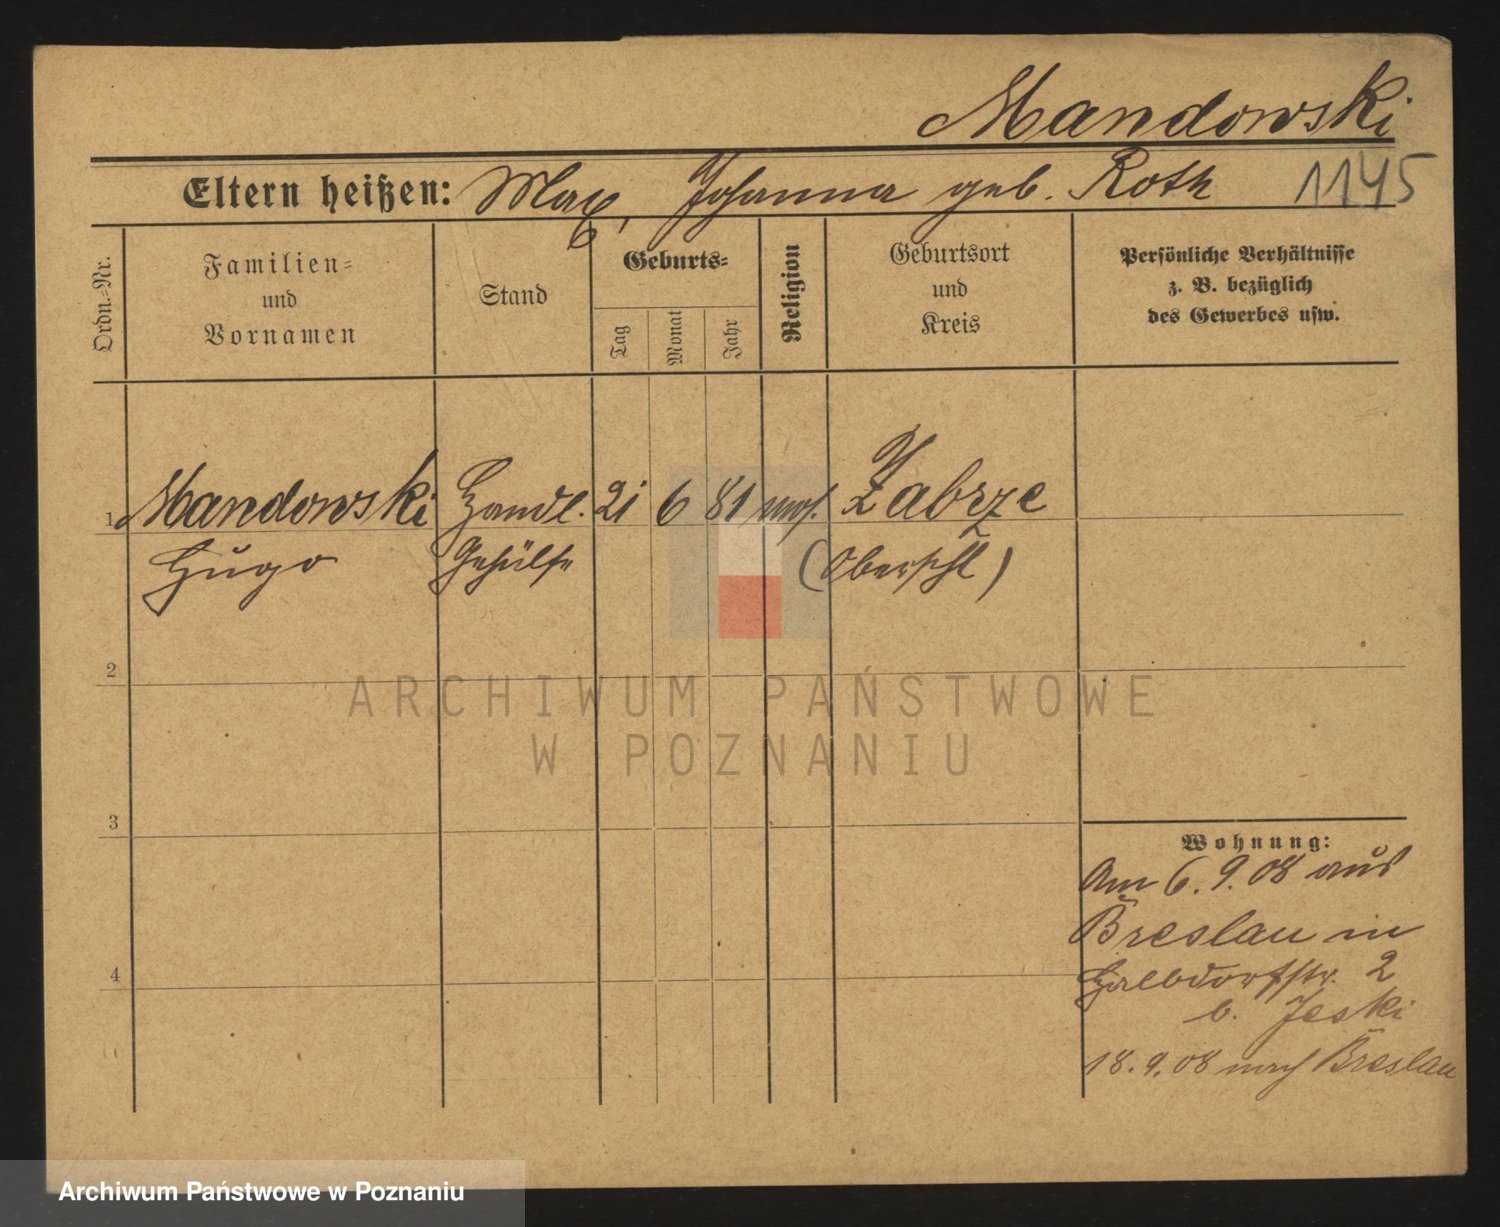 Mandowski
Eltern heißen: Max, Johanna geb. Roth 1145
Ordn.-Nr.
Familien-
und
Vornamen
Stand
Geburts-
Tag
Monat
Jahr
Religion
Geburtsort
und
Kreis
Persönliche Verhältnisse
z. B. bezüglich
des Gewerbes usw.
1 Mandowski Handl. 21 6 81 mos. Zabrze
Hugo Gehülfe (Oberschl)
2
3
4
Wohnung:
Am 6.9.08 aus
Breslau in
Halbdorfstr. 2
b. Jeski
18.9.08 nach Breslau
ARCHIWUM PAŃSTWOWE
W POZNANIU
Archiwum Państwowe w Poznaniu